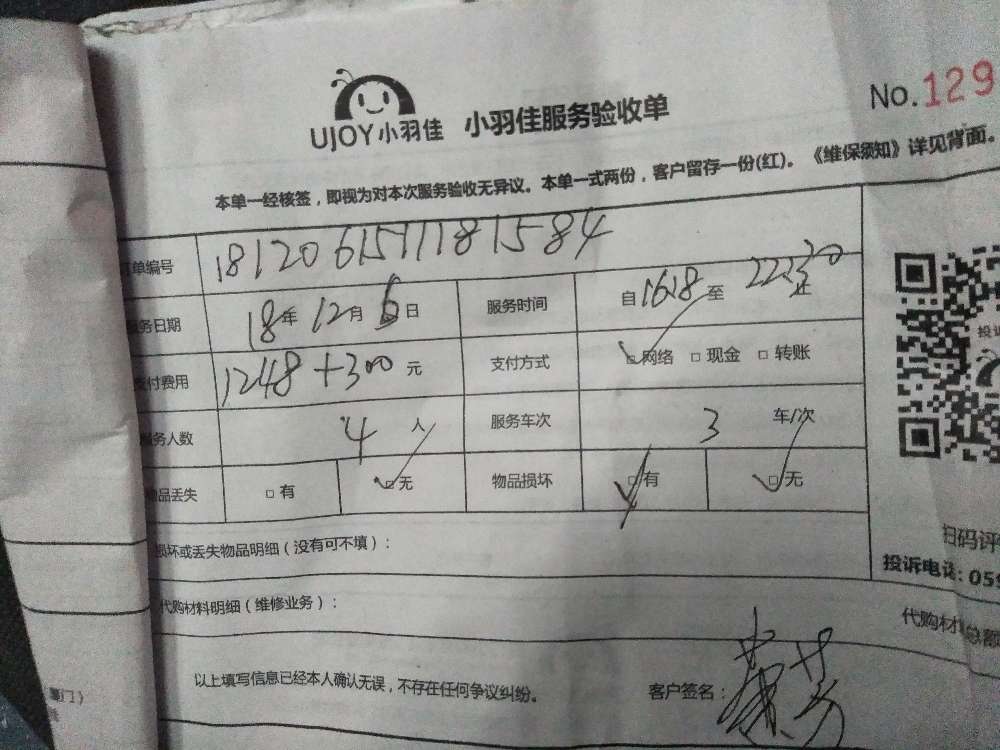 UJOY小羽佳 小羽佳服务验收单 No.129
本单一经核签，即视为对本次服务验收无异议。本单一式两份，客户留存一份(红)。《维保须知》详见背面。
单编号 18120615111181584
务日期 18年12月6日 服务时间 自1628至2223止
付费用 1248+300元 支付方式 □网络 □现金 □转账
服务人数 4人 服务车次 3车/次
物品丢失 □有 □无 物品损坏 □有 □无
损坏或丢失物品明细（没有可不填）：
扫码评
投诉电话：059
代购材料明细（维修业务）：
代购材 总额
以上填写信息已经本人确认无误，不存在任何争议纠纷。 客户签名：
门)
投诉